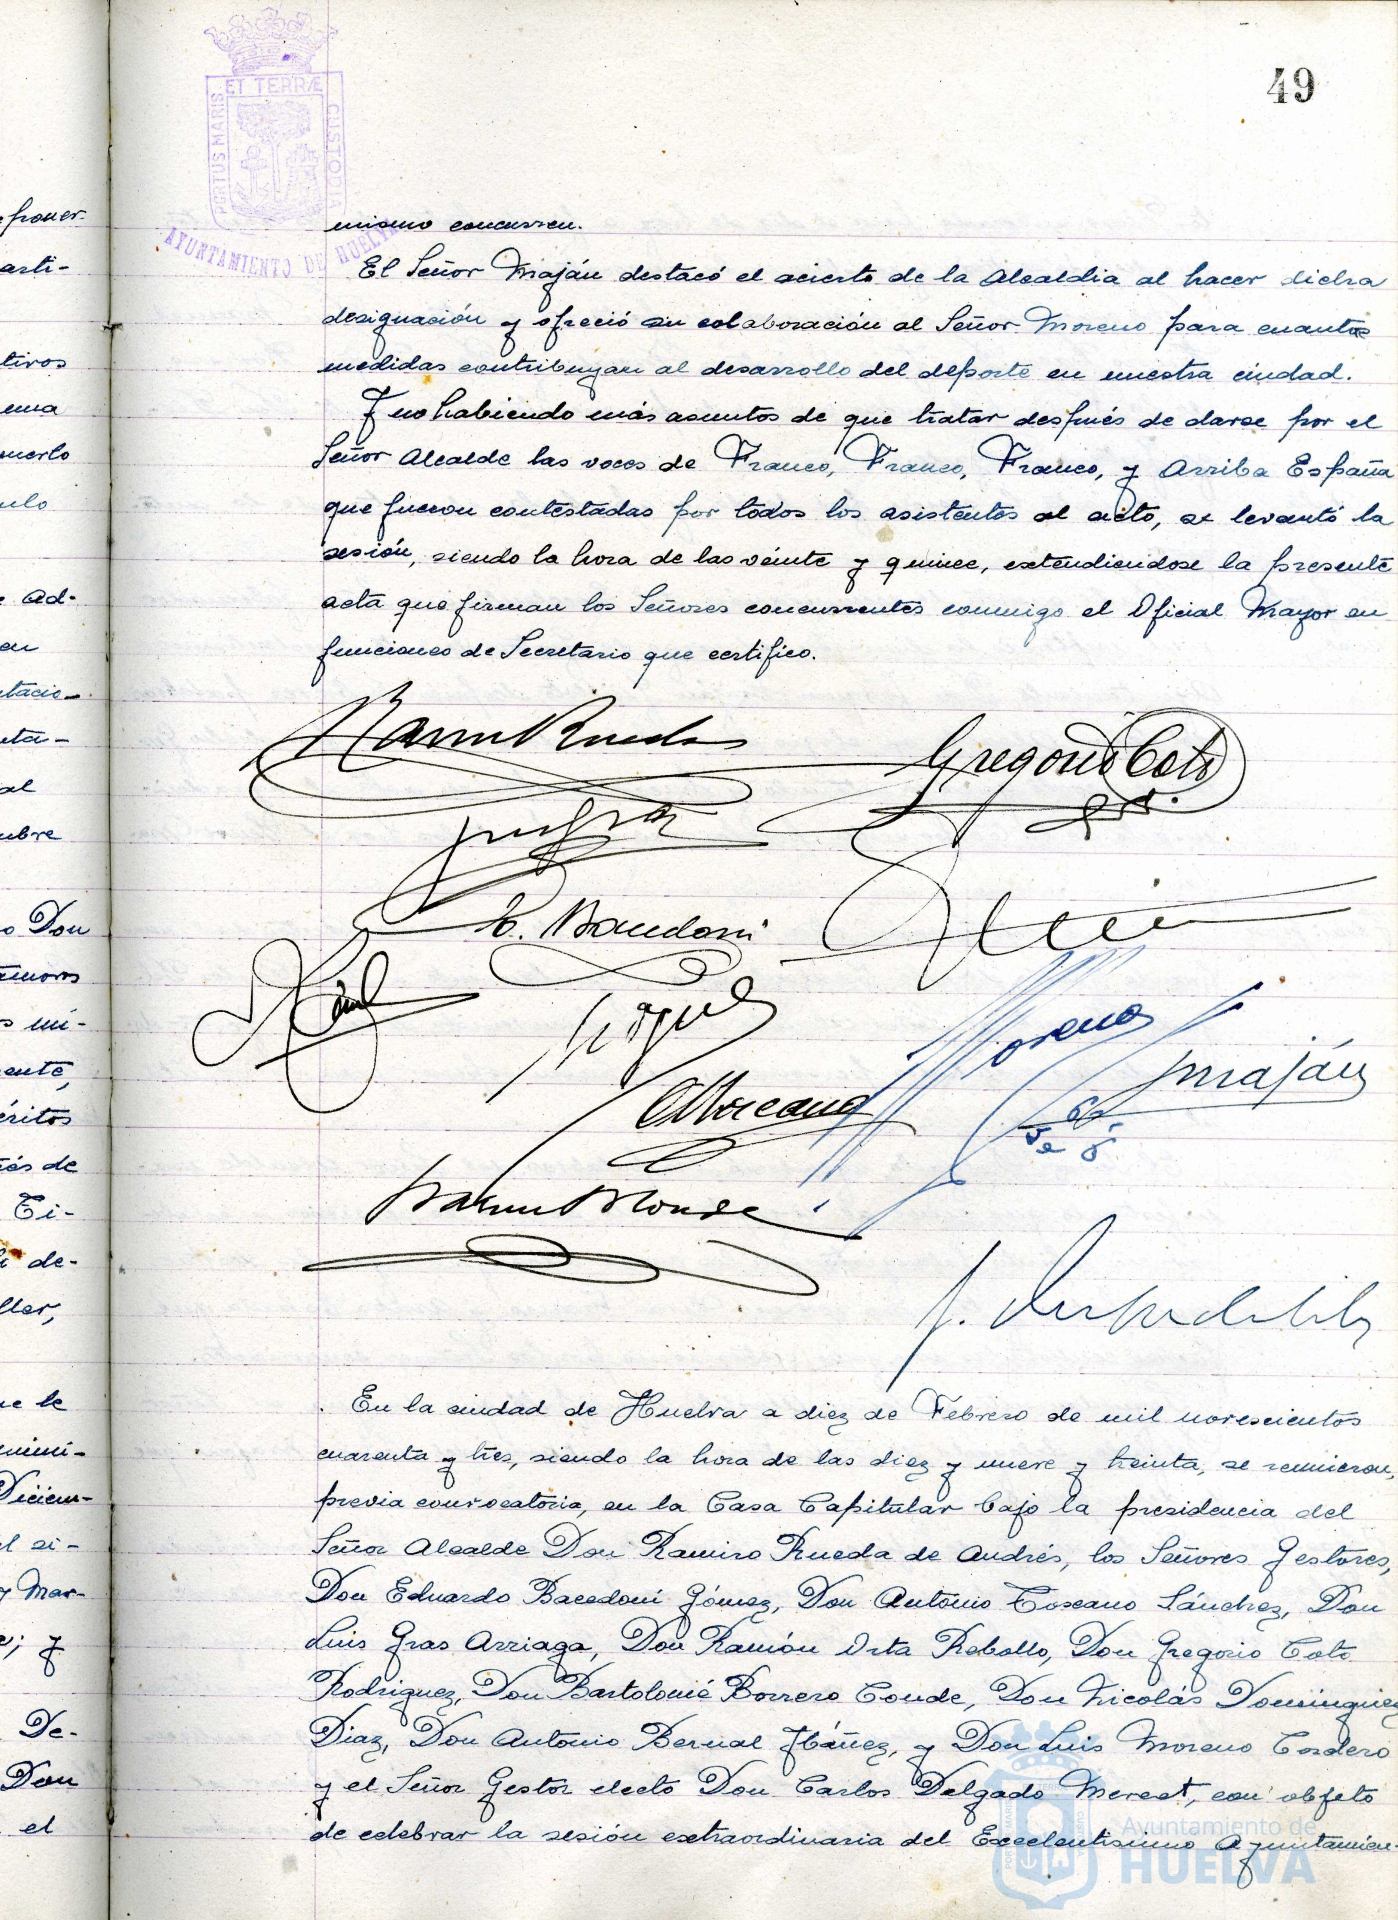 49
ET TERRÆ
PORTUS MARIS
CUSTODIA
AYUNTAMIENTO DE HUELVA
mismo concurren.
El Señor Maján destacó el acierto de la Alcaldia al hacer dicha
designación y ofreció su colaboración al Señor Moreno para cuantas
medidas contribuyan al desarrollo del deporte en nuestra ciudad.
Y no habiendo más asuntos de que tratar después de darse por el
Señor Alcalde las voces de Franco, Franco, Franco, y Arriba España
que fueron contestadas por todos los asistentes al acto, se levantó la
sesión, siendo la hora de las veinte y quince, extendiendose la presente
acta que firman los Señores concurrentes conmigo el Oficial Mayor en
funciones de Secretario que certifico.
Gregorio Coto
Moreno
Maján
En la ciudad de Huelva a diez de Febrero de mil novescientos
cuarenta y tres, siendo la hora de las diez y nueve y treinta, se reunieron,
previa convocatoria, en la Casa Capitular bajo la presidencia del
Señor Alcalde Don Ramiro Rueda de Andrés, los Señores Gestores,
Don Eduardo Bacedoni Gómez, Don Antonio Toscano Sánchez, Don
Luis Gras Arriaga, Don Ramón Orta Rebollo, Don Gregorio Coto
Rodriguez, Don Bartolomé Borrero Conde, Don Nicolás Dominguez
Diaz, Don Antonio Bernal Ybáñez, y Don Luis Moreno Cordero
y el Señor Gestor electo Don Carlos Delgado Mercet, con objeto
de celebrar la sesión extraordinaria del Excelentisimo Ayuntamien-
Ayuntamiento de
HUELVA